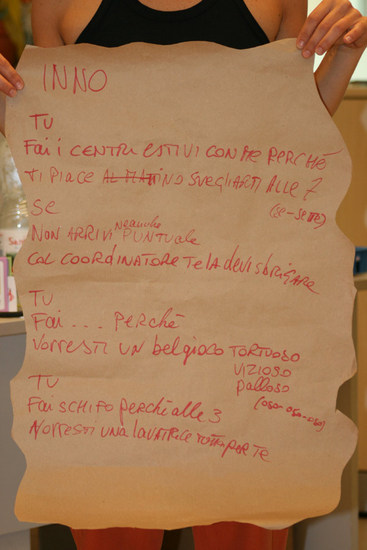 INNO
TU
Fai i CENTRI ESTIVI CON ME PERCHÉ
TI PIACE AL MATTINO SVEGLIARTI ALLE 7
(SE-SETTE)
SE
NON ARRIVI NEANCHE PUNTUALE
COL COORDINATORE TE LA DEVI SBRIGARE
TU
Fai... PERCHÉ
VORRESTI UN bel gioco TORTUOSO
VIZIOSO
palloso
(oso-oso-oso)
TU
Fai SCHIFO perché alle 3
VORRESTI UNA LAVATRICE TUTTA PER TE